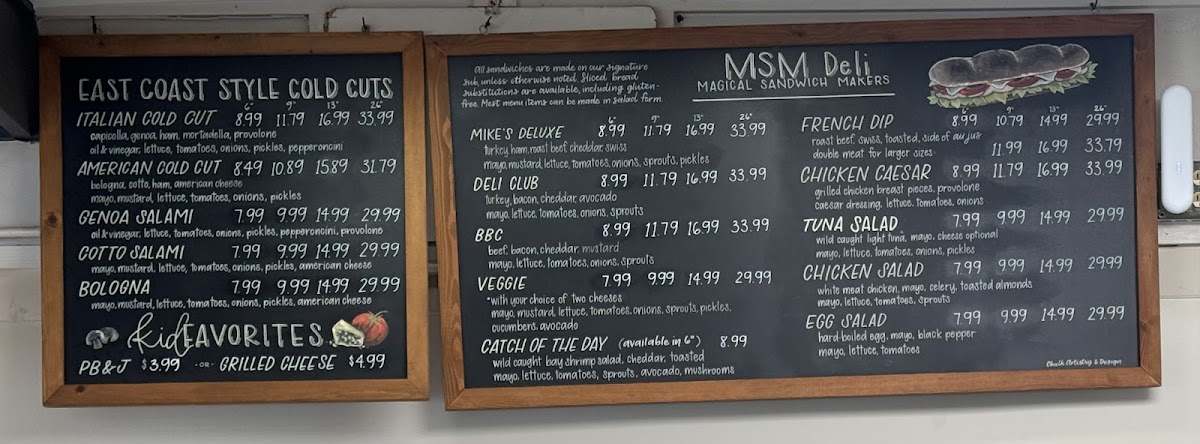 EAST COAST STYLE COLD CUTS
6" 9" 13" 26"
ITALIAN COLD CUT 8.99 11.79 16.99 33.99
capicolla, genoa, ham, mortadella, provolone
oil & vinegar, lettuce, tomatoes, onions, pickles, pepperoncini
AMERICAN COLD CUT 8.49 10.89 15.89 31.79
bologna, cotto, ham, american cheese
mayo, mustard, lettuce, tomatoes, onions, pickles
GENOA SALAMI 7.99 9.99 14.99 29.99
oil & vinegar, lettuce, tomatoes, onions, pickles, pepperoncini, provolone
COTTO SALAMI 7.99 9.99 14.99 29.99
mayo, mustard, lettuce, tomatoes, onions, pickles, american cheese
BOLOGNA 7.99 9.99 14.99 29.99
mayo, mustard, lettuce, tomatoes, onions, pickles, american cheese
kid FAVORITES
PB&J $3.99 -OR- GRILLED CHEESE $4.99
All sandwiches are made on our signature
sub, unless otherwise noted. Sliced bread
substitutions are available, including gluten-
free. Most menu items can be made in salad form.
MSM Deli
MAGICAL SANDWICH MAKERS
6" 9" 13" 26"
MIKE'S DELUXE 8.99 11.79 16.99 33.99
turkey, ham, roast beef, cheddar, swiss
mayo, mustard, lettuce, tomatoes, onions, sprouts, pickles
DELI CLUB 8.99 11.79 16.99 33.99
turkey, bacon, cheddar, avocado
mayo, lettuce, tomatoes, onions, sprouts
BBC 8.99 11.79 16.99 33.99
beef, bacon, cheddar, mustard
mayo, lettuce, tomatoes, onions, sprouts
VEGGIE 7.99 9.99 14.99 29.99
*with your choice of two cheeses
mayo, mustard, lettuce, tomatoes, onions, sprouts, pickles,
cucumbers, avocado
CATCH OF THE DAY (available in 6") 8.99
wild caught bay shrimp salad, cheddar, toasted
mayo, lettuce, tomatoes, sprouts, avocado, mushrooms
6" 9" 13" 26"
FRENCH DIP 8.99 10.79 14.99 29.99
roast beef, swiss, toasted, side of au jus
double meat for larger sizes 11.99 16.99 33.79
CHICKEN CAESAR 8.99 11.79 16.99 33.99
grilled chicken breast pieces, provolone
caesar dressing, lettuce, tomatoes, onions
TUNA SALAD 7.99 9.99 14.99 29.99
wild caught light tuna, mayo, cheese optional
mayo, lettuce, tomatoes, onions, pickles
CHICKEN SALAD 7.99 9.99 14.99 29.99
white meat chicken, mayo, celery, toasted almonds
mayo, lettuce, tomatoes, sprouts
EGG SALAD 7.99 9.99 14.99 29.99
hard-boiled egg, mayo, black pepper
mayo, lettuce, tomatoes
Chalk Artistry & Design